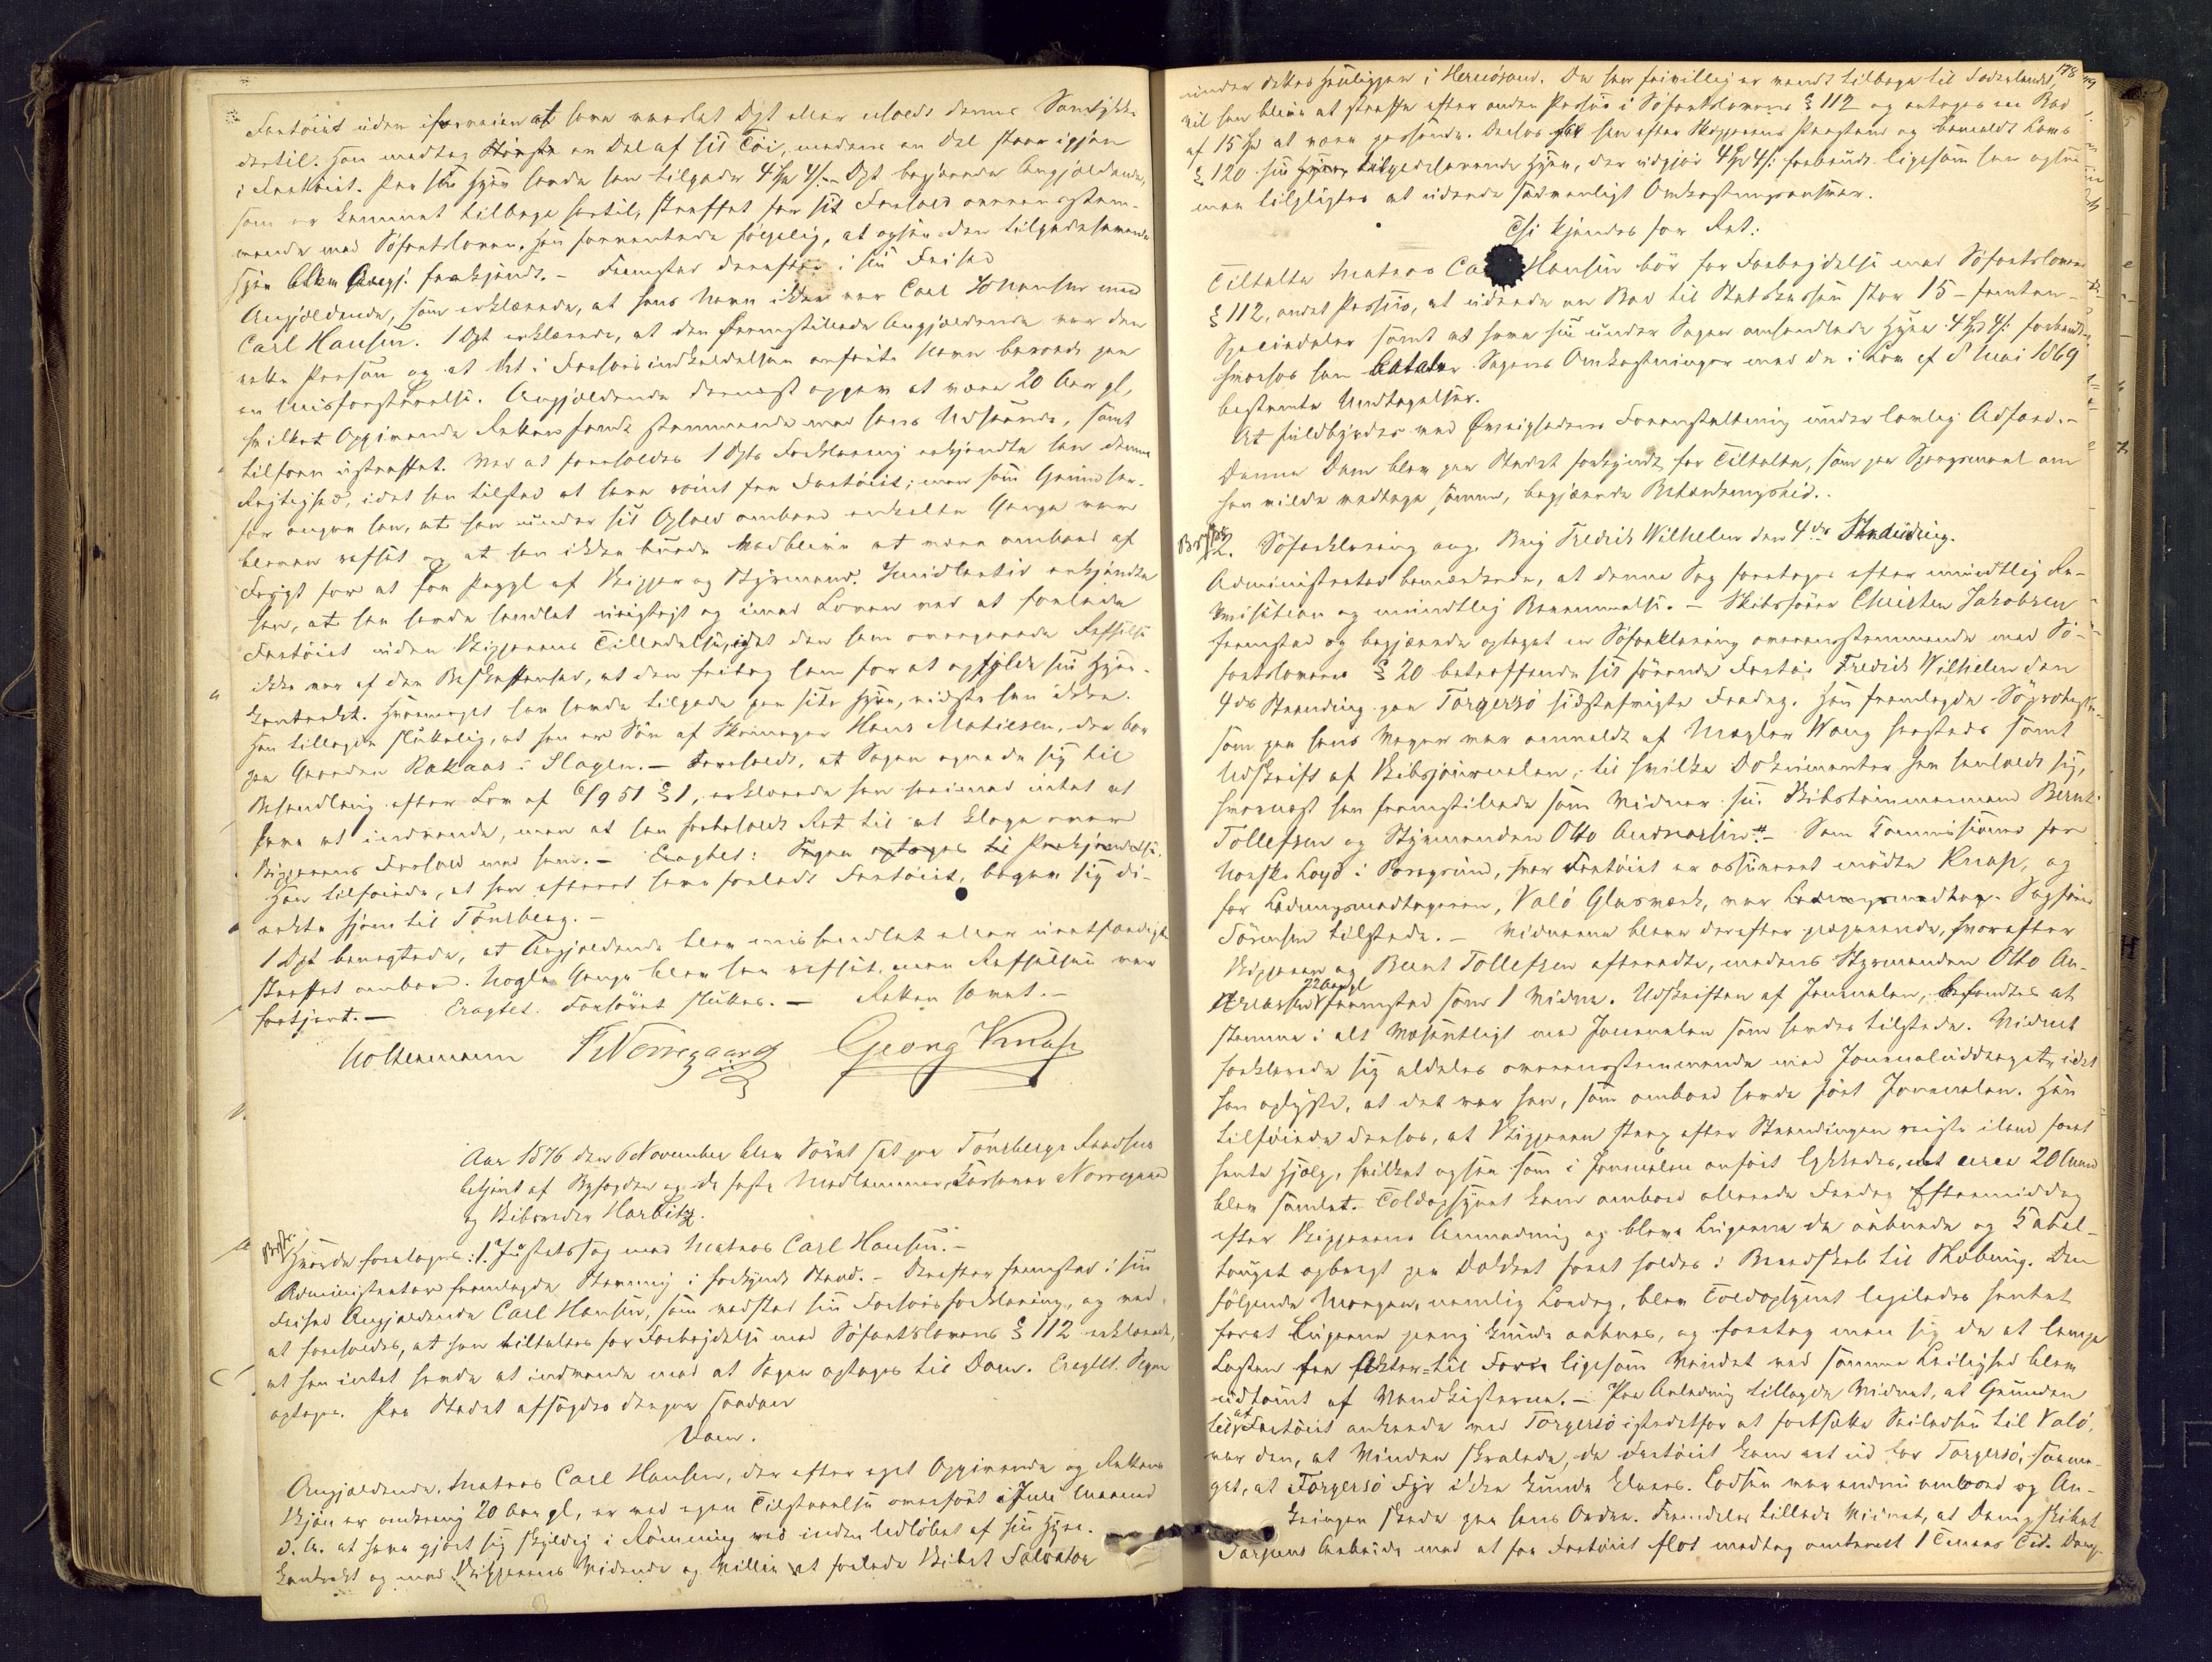 Fartöiet uden iforveien at have varslet Dpt eller erholdt dennes Samtykke
dertil. Han medtog en Del af sit Töi, medens en Del staar igjen
i Fartöiet. Paa sin Hyre havde han tilgode 4 Spd 4 s. Dpt begjærede Angjældende,
som er kommet tilbage hertil, straffet for sit Forhold overensstem-
mende med Söfartsloven, han formentede fölgelig, at ogsaa den tilgodehavende
Hyre bliver fradömt. - Fremstod derefter i sin Frihed
Angjældende, som erklærede, at hans Navn ikke var Carl Johansen men
Carl Hansen. 1 Dpt erklærede, at den fremstillede Angjældende var den
rette Person og at det i Forhörsindkaldelsen anförte Navn beroede paa
en Misforstaaelse. Angjældende dernæst opgav at være 20 Aar gl,
hvilket Opgivende Retten fandt stemmende med hans Udseende, samt
tilforn ustraffet. Ved at foreholdes 1 Dpts Forklaring erkjendte han dennes
Rigtighed, idet han tilstod at have römt fra Fartöiet; men som Grund her-
for angav han, at han under sit Ophold ombord enkelte Gange var
bleven refset og at han ikke turde vedblive at være ombord af
Frygt for at faa Prygl af Skipper og Styrmand. Imidlertid erkjendte
han, at han havde handlet urigtigt og imod Loven ved at forlade
Fartöiet uden Skipperens Tilladelse, idet den ham overgaaede Refselse
ikke var af den Beskaffenhed, at den fritog ham for at opfylde sin Hyre-
kontrakt. Hvormeget han havde tilgode paa sin Hyre, vidste han ikke.
Han tillagde sluttelig, at han er Sön af Skomager Hans Matiesen, der bor
paa Gaarden Rakaas i Slagen. - Foreholdt, at Sagen egnede sig til
Behandling efter Lov af 6/9 51 § 1, erklærede han herimod intet at
have at indvende, men at han forbeholdt Ret til at klage over
Skipperens Forhold mod ham. - Eragtet: Sagen optages til Paakjendelse.
Han tilföiede, at han efterat have forladt Fartöiet, begav sig di-
rekte hjem til Tönsberg. -
1 Dpt benegtede, at Angjældende blev mishandlet eller uretfærdigt
straffet ombord. Nogle Gange blev han refset, men Refselsen var
fortjent. - Eragtet. Forhöret sluttes. - Retten hævet. -
Holtermann Nörregaard Georg Knap
Aar 1876 den 6 November blev Söret sat paa Tönsbergs Raadhus
betjent af Byfogden og de faste Medlemmer, Kasserer Nörregaard
og Skibsreder Harbitz.
Hvorda foretoges: 1. Justitssag mod Matros Carl Hansen. -
Administrator fremlagde Stevning i forkyndt Stand. - Derefter fremstod i sin
Frihed Angjældende Carl Hansen, som vedstod sin Forhörsforklaring, og ved
at foreholdes, at han tiltaltes for Forbrydelse mod Söfartslovens § 112 erklærede,
at han intet havde at indvende mod at Sagen optages til Dom. Eragtet. Sagen
optages. Paa Stedet afsagdes dernæst saadan
Dom.
Angjældende, Matros Carl Hansen, der efter eget Opgivende og Rettens
Skjön er omkring 20 Aar gl, er ved egen Tilstaaelse overfört i Juli Maaned
d. A. at have gjort sig skyldig i Römning ved inden Udlöbet af sin Hyre-
kontrakt og mod Skipperens Vidende og Villie at forlade Skibet Salvator
178
under dettes Henliggen i Hernösand. Da han frivillig er vendt tilbage til Fædrelandet,
vil han blive at straffe efter anden Passus i Söfartslovens § 112 og antages en Bod
af 15 Spd at være passende. Derhos har han efter Skipperens Paastand og bemeldt Lovs
§ 120 sin tilgodehavende Hyre, der udgjör 4 Spd 4 s. forbrudt ligesom han ogsaa
maa tilpligtes at udrede sædvanligt Omkostningsansvar.
Thi kjendes for Ret:
Tiltalte Matros Ca Hansen bör for Forbrydelse mod Söfartslovens
§ 112, andet Passus, at udrede en Bod til Statskassen stor 15 - femten -
Speciedaler samt at have sin under Sagen omhandlede Hyre 4 Spd 4 s. forbrudt.
hvorhos han betaler Sagens Omkostninger med de i Lov af 8 Mai 1869
bestemte Undtagelser.
At fuldbyrdes ved Övrighedens Foranstaltning under lovlig Adfærd. -
Denne Dom blev paa Stedet forkyndt for Tiltalte, som paa Spörgsmaal om
han vilde vedtage samme, begjærede Betænkningstid.
2. Söforklaring ang. Brig Fredrik Wilhelm den 4des Stranding.
Administrator bemærkede, at denne Sag foretages efter mundtlig Re-
kvisition og mundtlig Berammelse. - Skibsförer Christen Jakobsen
fremstod og begjærede optaget en Söforklaring overensstemmende med Sö-
fartslovens § 20 betræffende sit förende Fartöi Fredrik Wilhelm den
4des Stranding paa Torgersö sidstafvigte Fredag. Han fremlagde Söprotest,
som paa hans Vegne var anmeldt af Megler Wang herstedes samt
Udskrift af Skibsjournalen, til hvilke Dokumenter han henholdt sig,
hvornæst han fremstillede som Vidner sin Skibstömmermand Bernt
Tollefsen og Styrmanden Otto Andreassen. - Som Kommissionær for
Norske Loyd i Porsgrund, hvor Fartöiet er assureret mödte Knap, og
for Ladningsmodtageren, Valö Glasværk, var Sagförer
Sörensen tilstede. - Vidnerne bleve derefter præparerede, hvorefter
Skipperen og Bernt Tollefsen aftraadte, medens Styrmanden Otto An-
dreassen 22 Aar gl fremstod som 1 Vidne. Udskriften af Journalen, befandtes at
stemme i alt Væsentligt med Journalen som havdes tilstede. Vidnet
forklarede sig aldeles overensstemmende med Journaluddraget, idet
han oplyste, at det var ham, som ombord havde fört Journalen. Han
tilföiede derhos, at Skipperen strax efter Strandingen reiste iland forat
hente Hjælp, hvilket ogsaa som i Journalen anfört lykkedes, idet circa 20 Mand
blev samlet. Toldopsynet kom ombord allerede Fredag Eftermiddag
efter Skipperens Anmodning og bleve Lugerne da aabnede og Kabel-
touget opbragt paa Dækket forat holdes i Beredskab til Slæbning. Den
fölgende Morgen, nemlig Lördag, blev Toldopsynet ligeledes hentet
forat Lugerne paany kunde aabnes, og foretog man sig da at lempe
Lasten fra Agter til For ligesom Vandet ved samme Leilighed blev
udtömt af Vandkisterne. - Paa Anledning tillagde Vidnet, at Grunden
til at Fartöiet ankrede ved Torgersö istedetfor at fortsætte Seiladsen til Valö,
var den, at Vinden skralede, da Fartöiet kom ret ud for Torgersö, saame-
get, at Torgersö Fyr ikke kunde klares. Lodsen var endnu ombord og An-
kringen skede paa hans Ordre. Fremdeles tillagde Vidnet, at Dampskibet
Farmens Arbeide med at faa Fartöiet flot medtog omtrent 1 Times Tid. Damp-